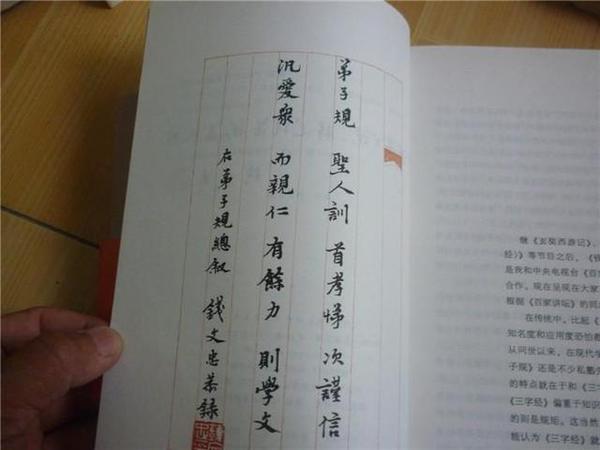 弟子規 聖人訓 首孝悌 次謹信
汎愛衆 而親仁 有餘力 則學文
右弟子規總叙 錢文忠恭録
继《玄奘西游记》、
经》等节目之后，《
是我和中央电视台《百
合作。现在呈现在大家
根据《百家讲坛》的同
在传统中，比起《
知名度和应用度恐怕都
从问世以来，在现代学
子规》还是不少私塾
的特点就在于和《三
《三字经》偏重于知识
的则是规矩。这当然
能认为《三字经》